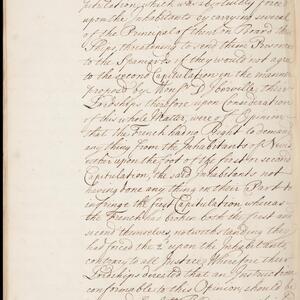 pitulation, which was absolutely forced
upon the Inhabitants by carrying several
of the Principal of them on Board the
Ships, threatning to send them Prisoners
to the Spaniards if they would not agree
to the second Capitulation in the manner
proposed by Monsr D'Iberville; their
Lordships therefore upon Consideration
of this whole Matter, were of Opinion
that the French had no Right to demand
any thing from the Inhabitants of Nevis
either upon the foot of the first or second
Capitulation, the said Inhabitants not
having done any thing on their Part to
infringe the first Capitulation, whereas
the French has broken both the first and
second themselves, notwithstanding they
had forced the 2d upon the Inhabitants
contrary to all Justice; Wherefore their
Lordships directed that an Instruction
conformable to this Opinion, should be